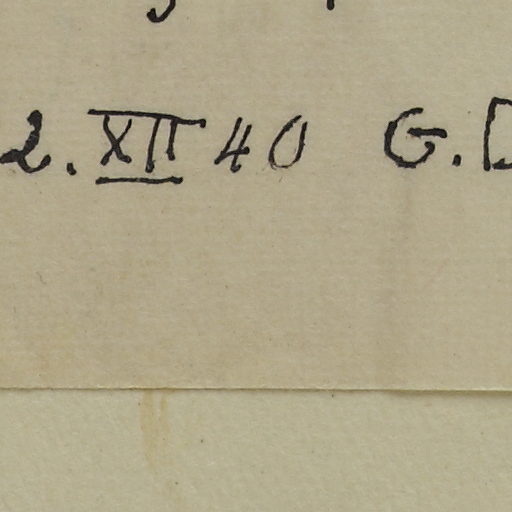 2. XII 40 G. D